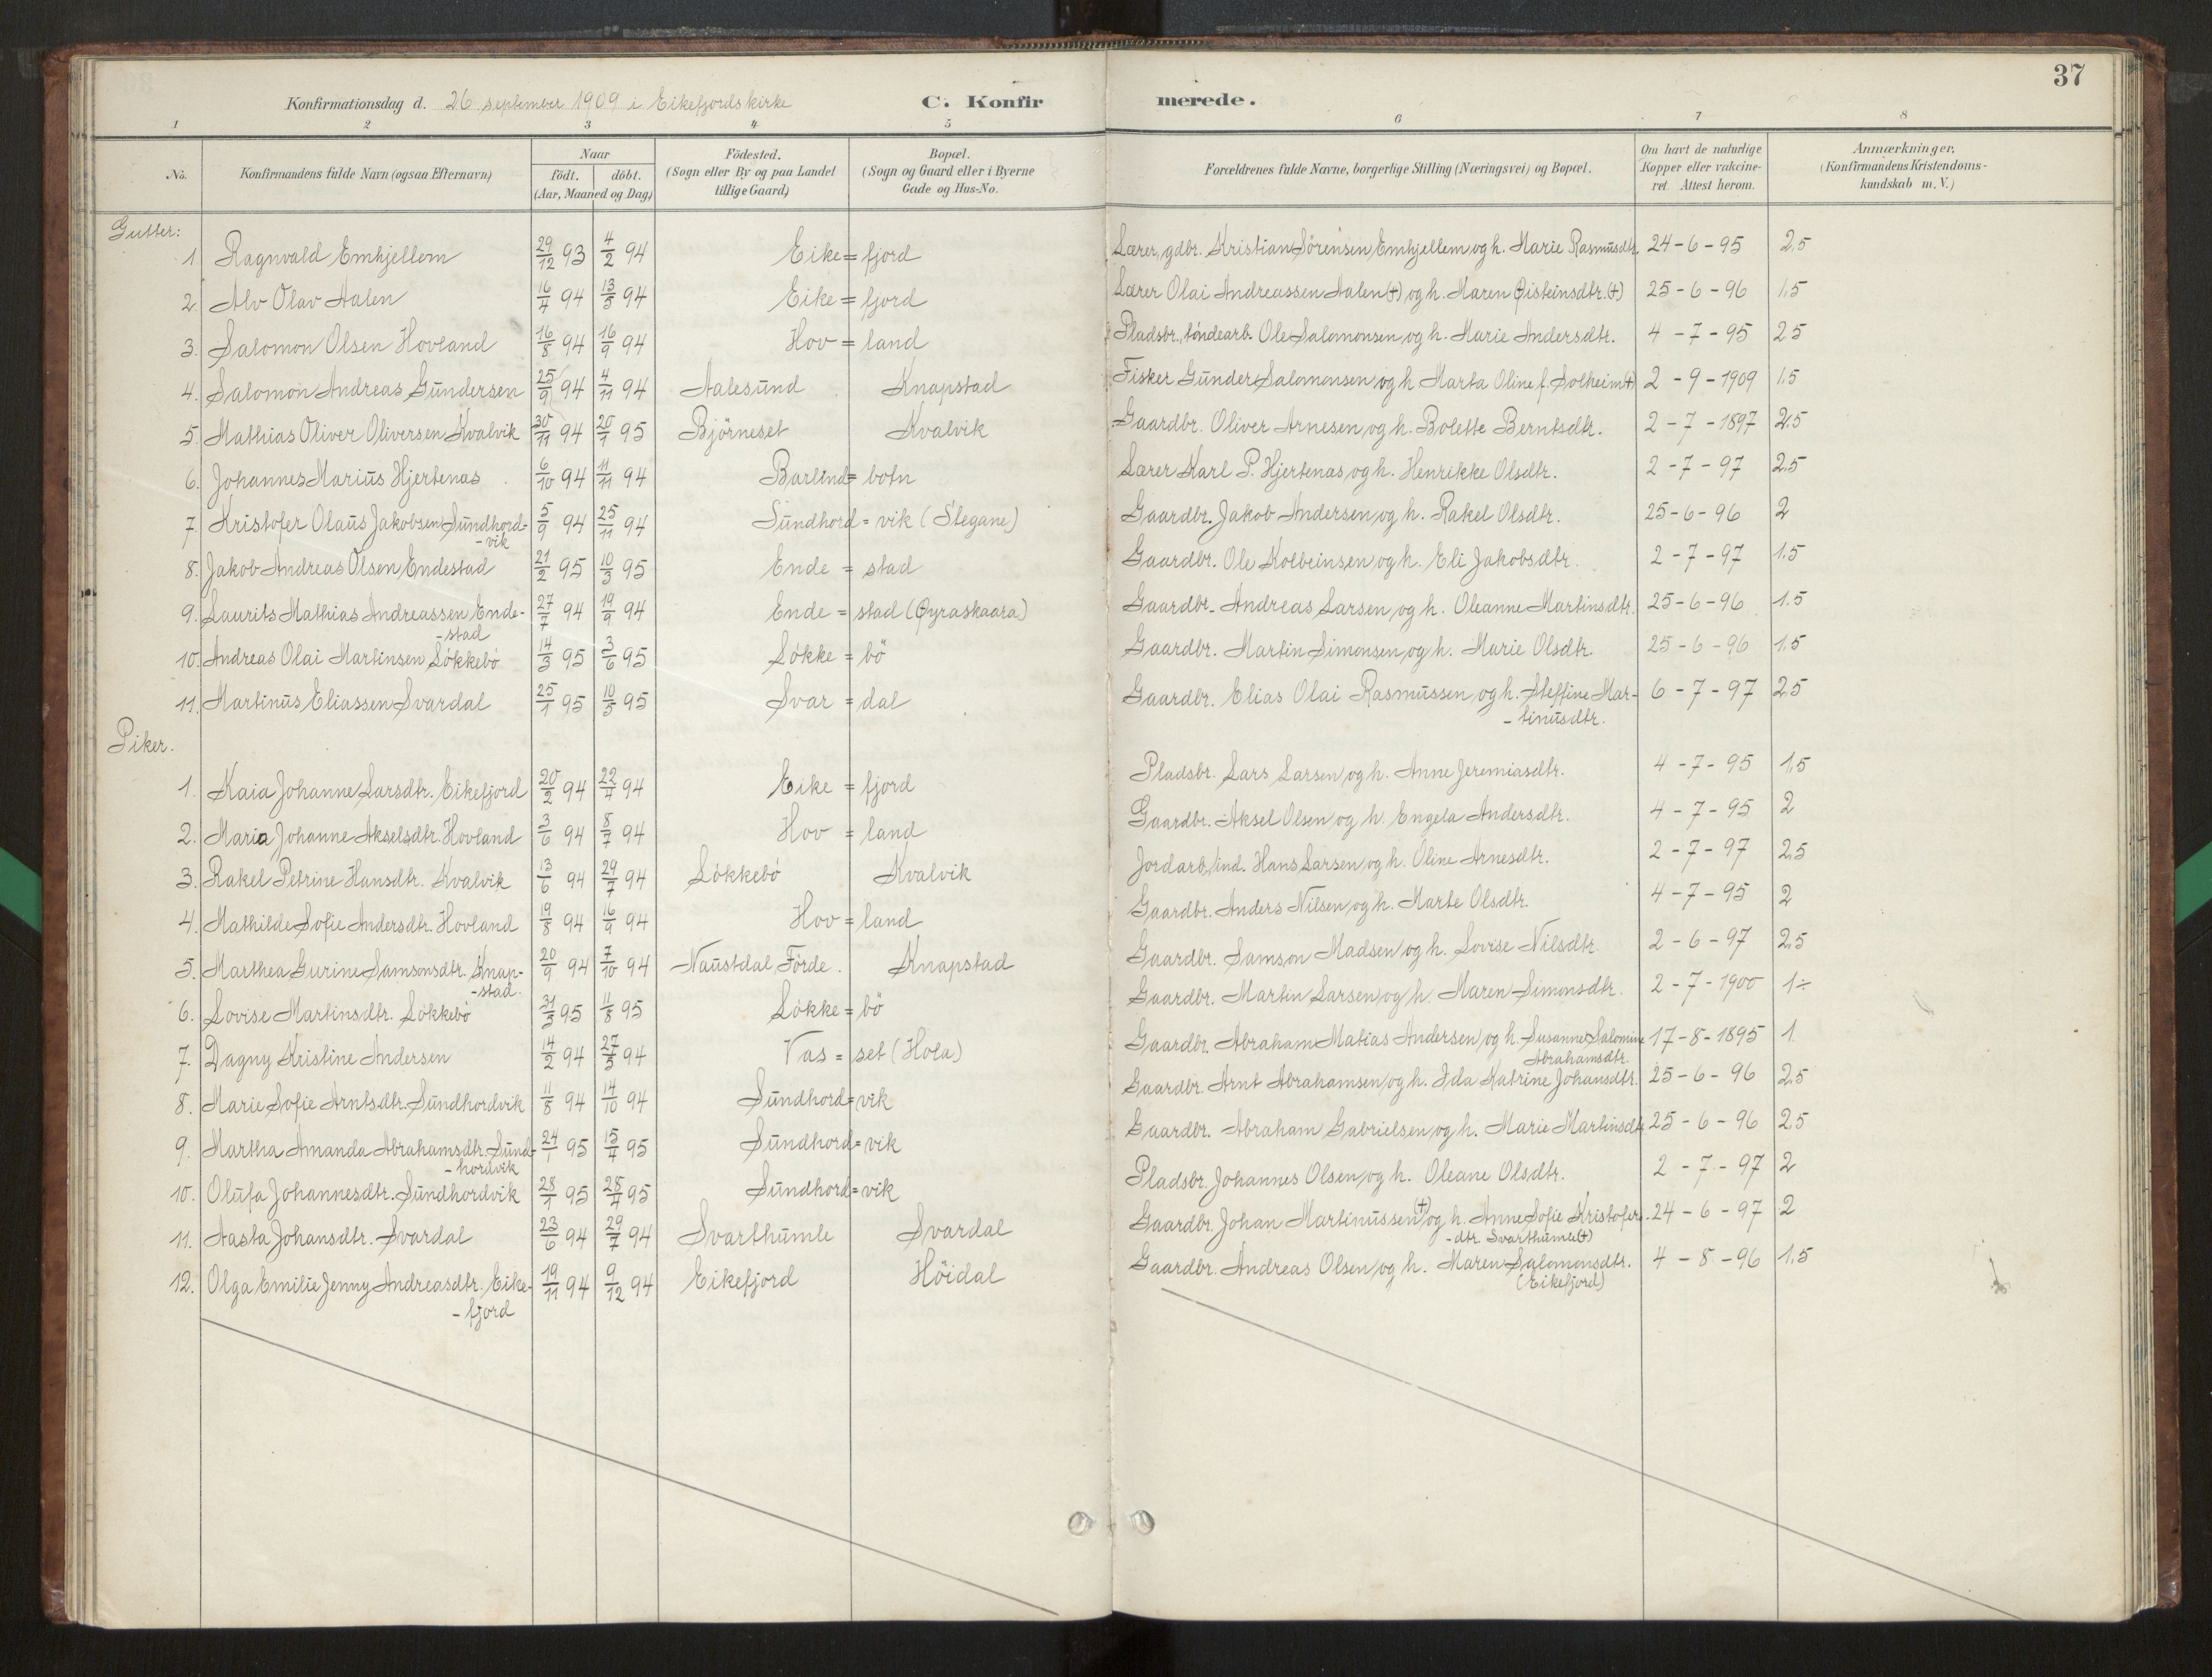 37
Konfirmationsdag d. 26 september 1909 i Eikefjords kirke C. Konfirmerede.
1 2 3 4 5 6 7 8
No. Konfirmandens fulde Navn (ogsaa Efternavn) Naar Födt. döbt. (Aar, Maaned og Dag) Födested. (Sogn eller By og paa Landet tillige Gaard) Bopæl. (Sogn og Gaard eller i Byerne Gade og Hus-No. Forældrenes fulde Navne, borgerlige Stilling (Næringsvei) og Bopæl. Om havt de naturlige Kopper eller vakcineret Attest herom. Anmærkninger, (Konfirmandens Kristendomskundskab m. V.)
Gutter:
1. Ragnvald Emhjellem 29/12 93 4/2 94 Eike=fjord Lærer, gdbr. Kristian Sörensen Emhjellem og h. Marie Rasmusdtr. 24-6-95 2.5
2. Alv Olav Aalen 16/4 94 13/5 94 Eike=fjord Lærer Olai Andreassen Aalen (+) og h. Maren Øisteinsdtr. (+) 25-6-96 1.5
3. Salomon Olsen Hovland 16/8 94 16/9 94 Hov=land Pladsbr., töndearb. Ole Salomonsen og h. Marie Andersdtr. 4-7-95 2.5
4. Salomon Andreas Gundersen 25/9 94 4/11 94 Aalesund Knapstad Fisker Gunder Salomonsen og h Marta Oline f. Solheim (+) 2-9-1909 1.5
5. Mathias Oliver Oliversen Kvalvik 30/11 94 20/1 95 Björneset Kvalvik Gaardbr. Oliver Arnesen og h. Bolette Berntsdtr. 2-7-1897 2.5
6. Johannes Marius Hjertenæs 6/10 94 11/11 94 Barlind=botn Lærer Karl P. Hjertenæs og h. Henrikke Olsdtr. 2-7-97 2.5
7. Kristofer Olaus Jakobsen Sundhord- 5/9 94 25/11 94 Sundhord=vik (Stegane) Gaardbr. Jakob Andersen og h. Rakel Olsdtr. 25-6-96 2
-vik
8. Jakob Andreas Olsen Endestad 21/2 95 10/3 95 Ende=stad Gaardbr. Ole Kolbeinsen og h. Eli Jakobsdtr. 2-7-97 1.5
9. Laurits Mathias Andreassen Ende- 27/7 94 19/9 94 Ende=stad (Øyraskaara) Gaardbr. Andreas Larsen og h. Oleanne Martinsdtr. 25-6-96 1.5
-stad
10. Andreas Olai Martinsen Lökkebö 14/3 95 3/6 95 Lökke=bö Gaardbr. Martin Simonsen og h. Marie Olsdtr. 25-6-96 1.5
11. Martinus Eliassen Svardal 25/1 95 10/3 95 Svar=dal Gaardbr. Elias Olai Rasmussen og h. Steffine Mar- 6-7-97 2.5
-tinusdtr.
Piker.
1. Kaia Johanne Larsdtr. Eikefjord 20/2 94 22/4 94 Eike=fjord Pladsbr. Lars Larsen og h. Anne Jeremiasdtr. 4-7-95 1.5
2. Maria Johanne Akselsdtr. Hovland 3/6 94 8/7 94 Hov=land Gaardbr. Aksel Olsen og h. Engela Andersdtr. 4-7-95 2
3. Rakel Petrine Hansdtr. Kvalvik 13/6 94 29/7 94 Lökkebö Kvalvik Jordarb., ind. Hans Larsen og h. Oline Arnesdtr. 2-7-97 2.5
4. Mathilde Sofie Andersdtr. Hovland 19/8 94 16/9 94 Hov=land Gaardbr. Anders Nilsen og h. Marte Olsdtr. 4-7-95 2
5. Marthea Gurine Samsonsdtr. Knap- 20/9 94 7/10 94 Naustdal, Förde. Knapstad Gaardbr. Samson Madsen og h. Lovise Nilsdtr. 2-6-97 2.5
-stad.
6. Lovise Martinsdtr. Lökkebö 31/3 95 11/8 95 Lökke=bö Gaardbr. Martin Larsen og h. Maren Simonsdtr. 2-7-1900 1÷
7. Dagny Kristine Andersen 14/2 94 27/5 94 Vas=set (Hola) Gaardbr. Abraham Matias Andersen og h. Susanne Salomine 17-8-1895 1.
Abrahamsdtr.
8. Marie Sofie Arntsdtr. Sundhordvik 11/8 94 14/10 94 Sundhord=vik Gaardbr. Arnt Abrahamsen og h. Ida Katrine Johansdtr. 25-6-96 2.5
9. Martha Amanda Abrahamsdtr. Sund- 24/1 95 15/4 95 Sundhord=vik Gaardbr. Abraham Gabrielsen og h. Marie Martinsdtr. 25-6-96 2.5
-hordvik
10. Olufa Johannesdtr. Sundhordvik 28/1 95 28/4 95 Sundhord=vik Pladsbr. Johannes Olsen og h. Oleane Olsdtr. 2-7-97 2
11. Aasta Johansdtr. Svardal 23/6 94 29/7 94 Svarthumle Svardal Gaardbr. Johan Martinussen (+) og h. Anne Sofie Kristofers- 24-6-97 2
-dtr. Svarthumle (+)
12. Olga Emilie Jenny Andreasdtr. Eike- 19/11 94 9/12 94 Eikefjord Höidal Gaardbr. Andreas Olsen og h. Maren Salomonsdtr. 4-8-96 1.5
-fjord (Eikefjord)